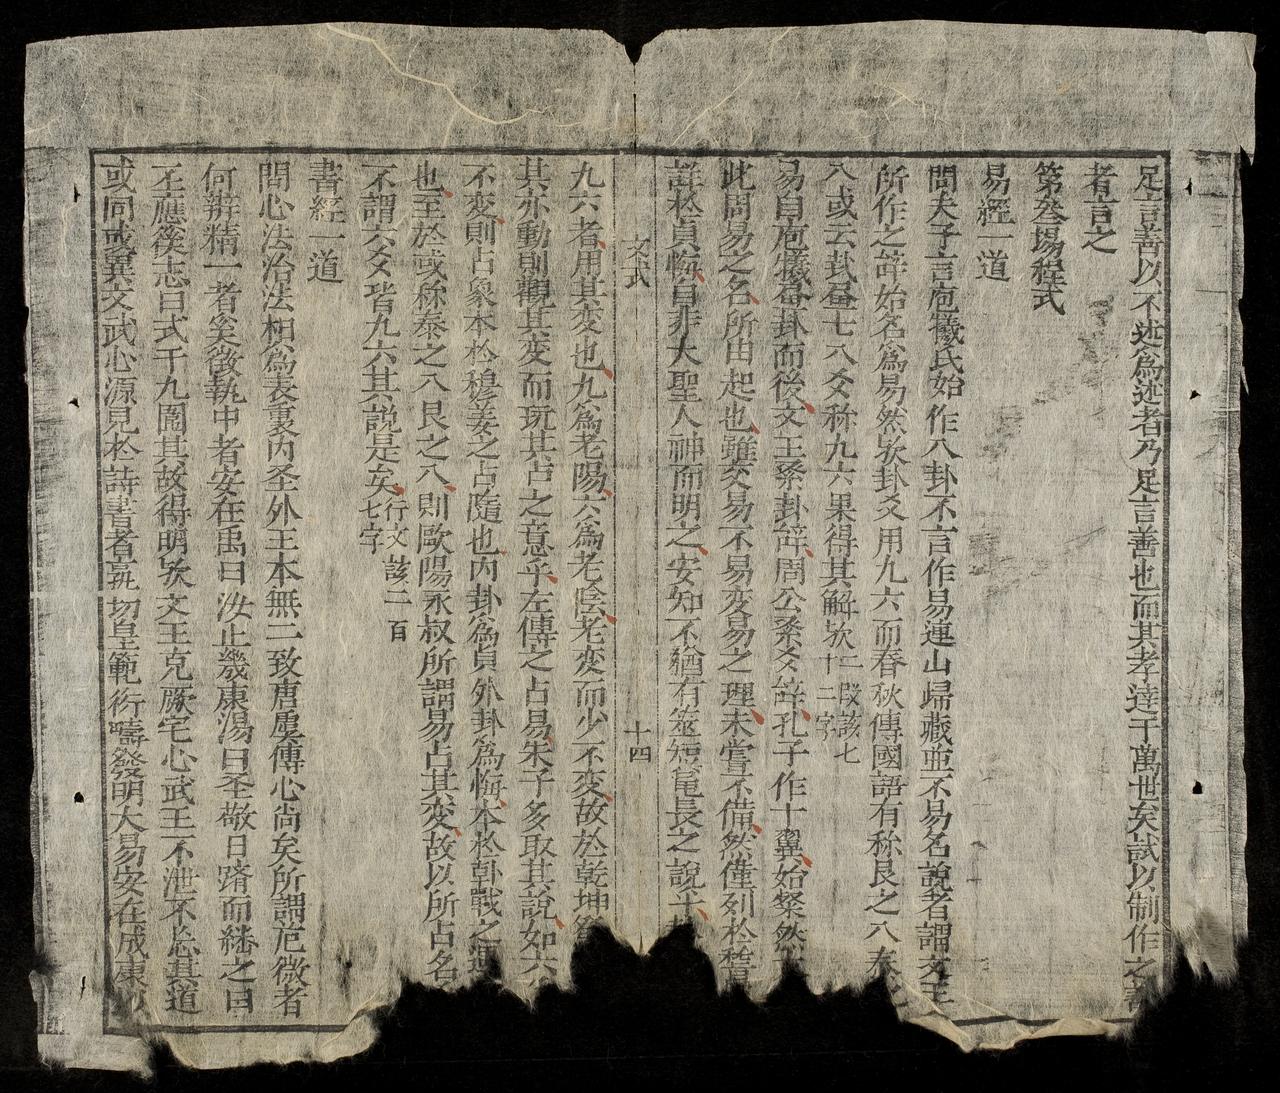 足言善以不述爲述者乃足言善也而其孝達于萬世矣試以制作之善
者言之
第叁場程式
易經一道
問夫子言庖犧氏始作八卦不言作易連山歸藏亜不易名說者謂文王
所作之辞始名爲易然欤卦爻用九六而春秋傳國語有称艮之八泰之
八或云卦虽七八爻称九六果得其解欤二段該七十二字
易自庖犧畵卦而後文王系卦辞周公系爻辞孔子作十翼始粲然
此周易之名所由起也雖交易不易変易之理未嘗不備然僅列於
詳於貞悔自非大聖人神而明之安知不猶有筮短龜長之說乎
文式
十四
九六者用其変也九爲老陽六爲老陰老変而少不変故於乾坤
其亦動則觀其変而玩其占之意乎左傳之占易朱子多取其說如六
不変則占彖本於穆姜之占隨也内卦爲貞外卦爲悔本於卦戰之
也至於或称泰之八艮之八則歐陽永叔所謂易占其変故以所占名
不謂六爻皆九六其説是矣行文該二百七字
書經一道
問心法治法相爲表裏内圣外王本無二致唐虞傳心尚矣所謂危微者
何辨精一者奚徵執中者安在禹曰汝止㡬康湯曰圣敬日躋而繙之曰
丕應徯志曰式于九圍其故得明欤文王克厥宅心武王不泄不忘其道
或同或異文武心源見於詩書者孰切皇範衍疇發明大易安在成康